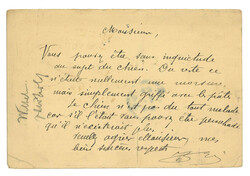 Monsieur,
Vous pouvez être sans inquiétude
au sujet du chien. Du reste ce
n'était nullement une morsure
mais simplement griffé avec la patte
le chien n'est pas du tout malade
car s'il l'était sans être
qu'il n'existerait plus
Veuillez agréer Monsieur, mes
bien sincères respects